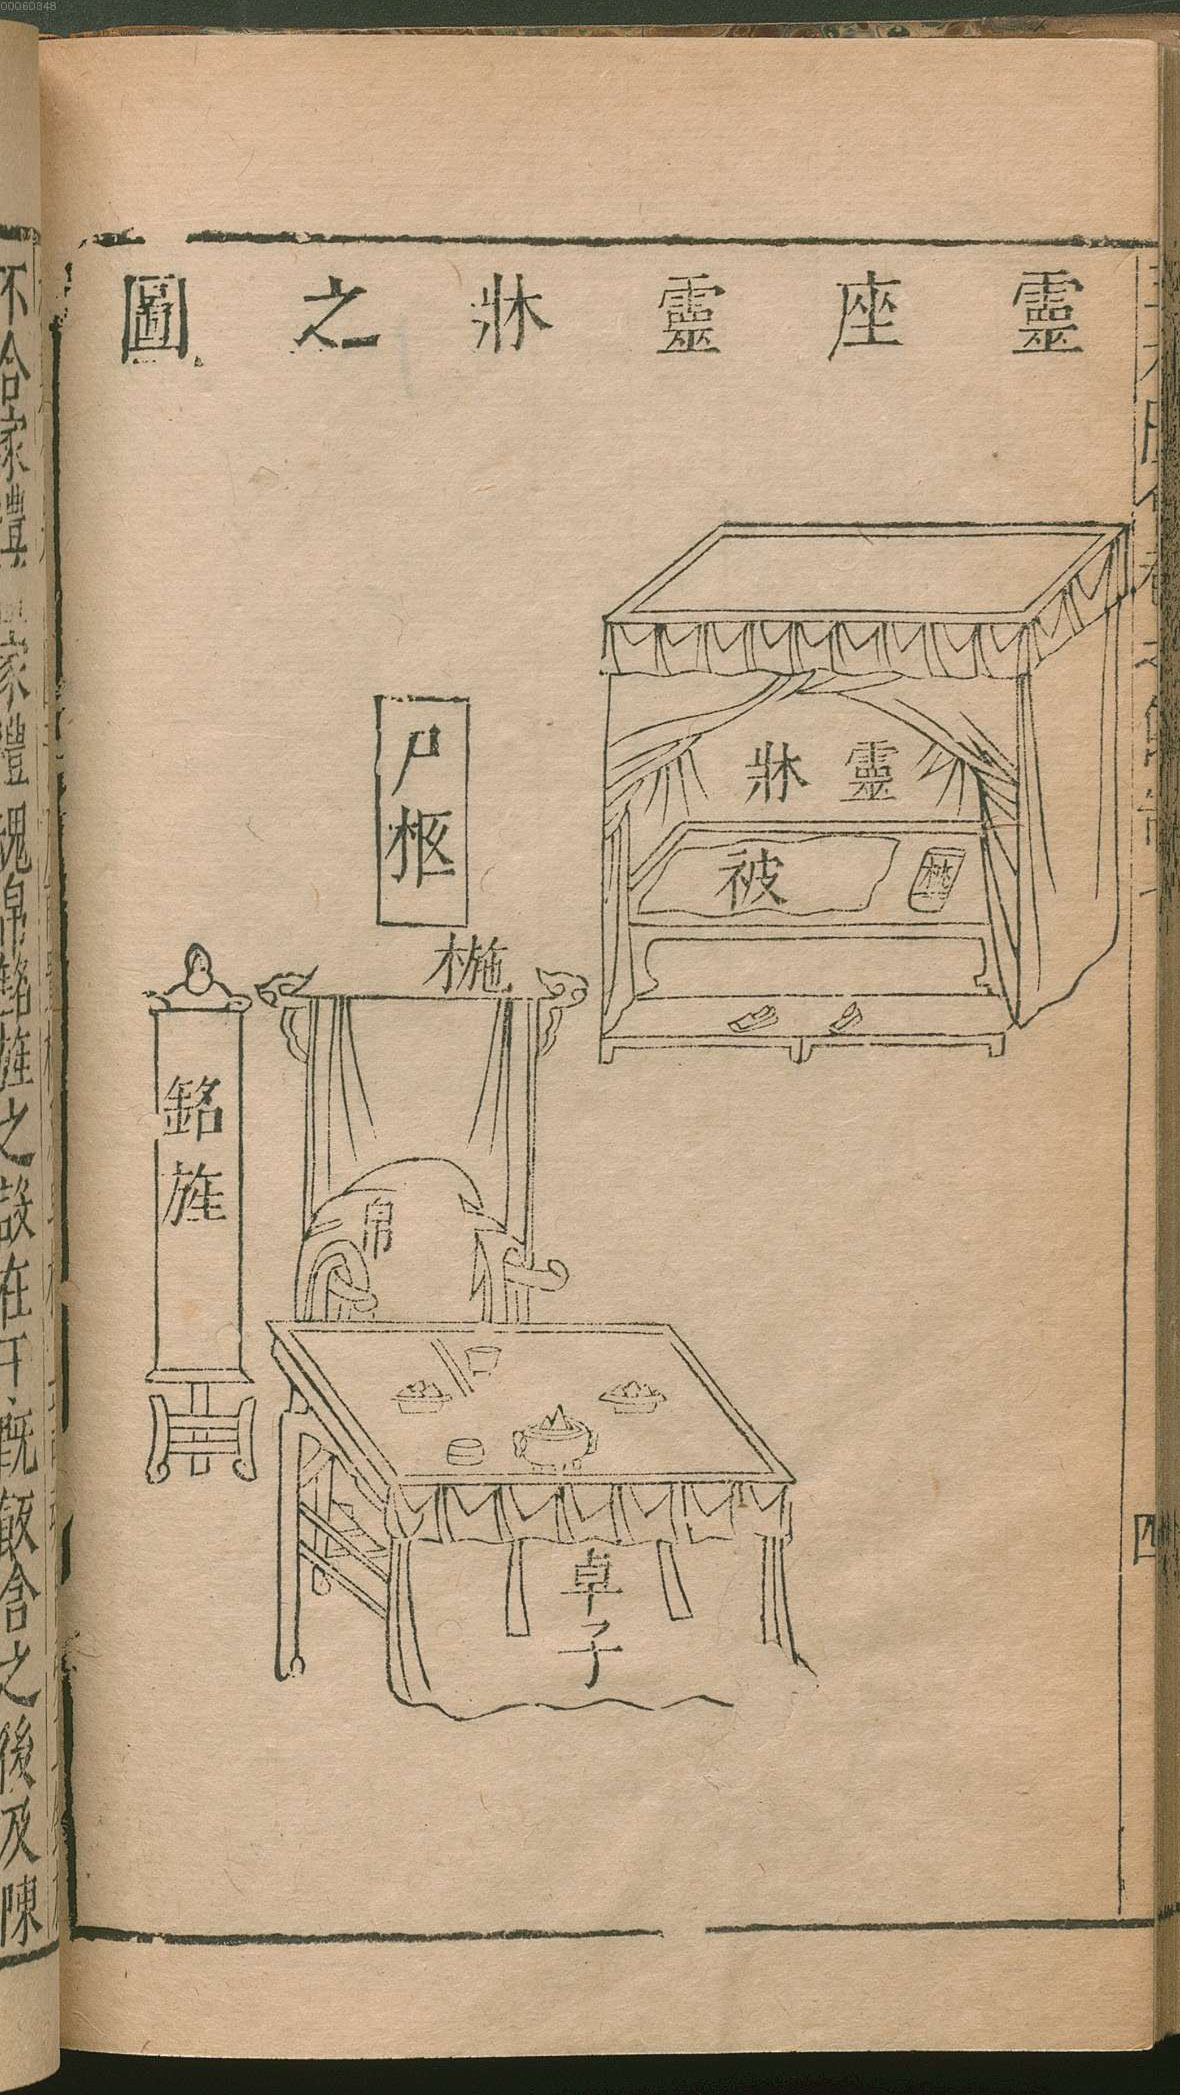 靈座靈牀之圖
靈牀
被
枕
尸柩
椸
銘旌
帛
卓子
四
不合家禮
家禮魂帛銘旌之設在于既飯含之後及陳
00060348